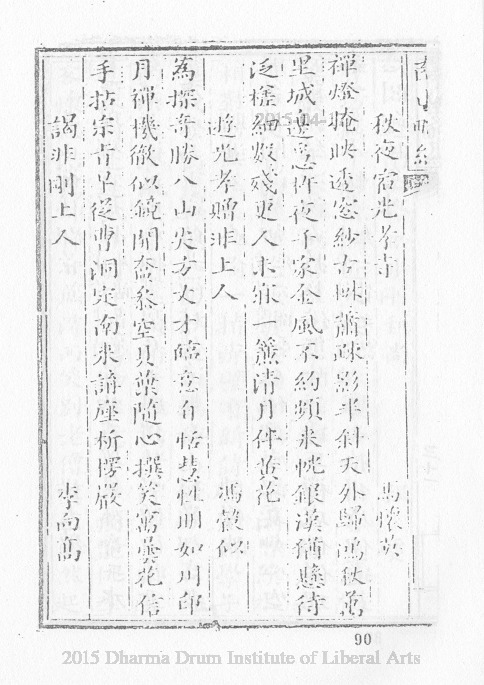 秋夜宿光孝寺 馬懷英
禪燈掩映透窓紗古味蕭疎影半斜天外歸鴻秋萬
里城邊急杵夜千家金風不約頻來恍銀漢猶懸待
泛槎細數殘更人未寐簾清月伴黃花
遊光孝贈非上人 馮毅似
為探奇勝入山尖方丈才臨意自恬慧性朗如川印
月禪機徹似鏡開奩參空貝葉隨心撰笑寓曇花信
手拈宗旨早從曹洞定南來請座析楞嚴
謁非剛上人 李向高
90
2015 Dharma Drum Institute of Liberal Arts